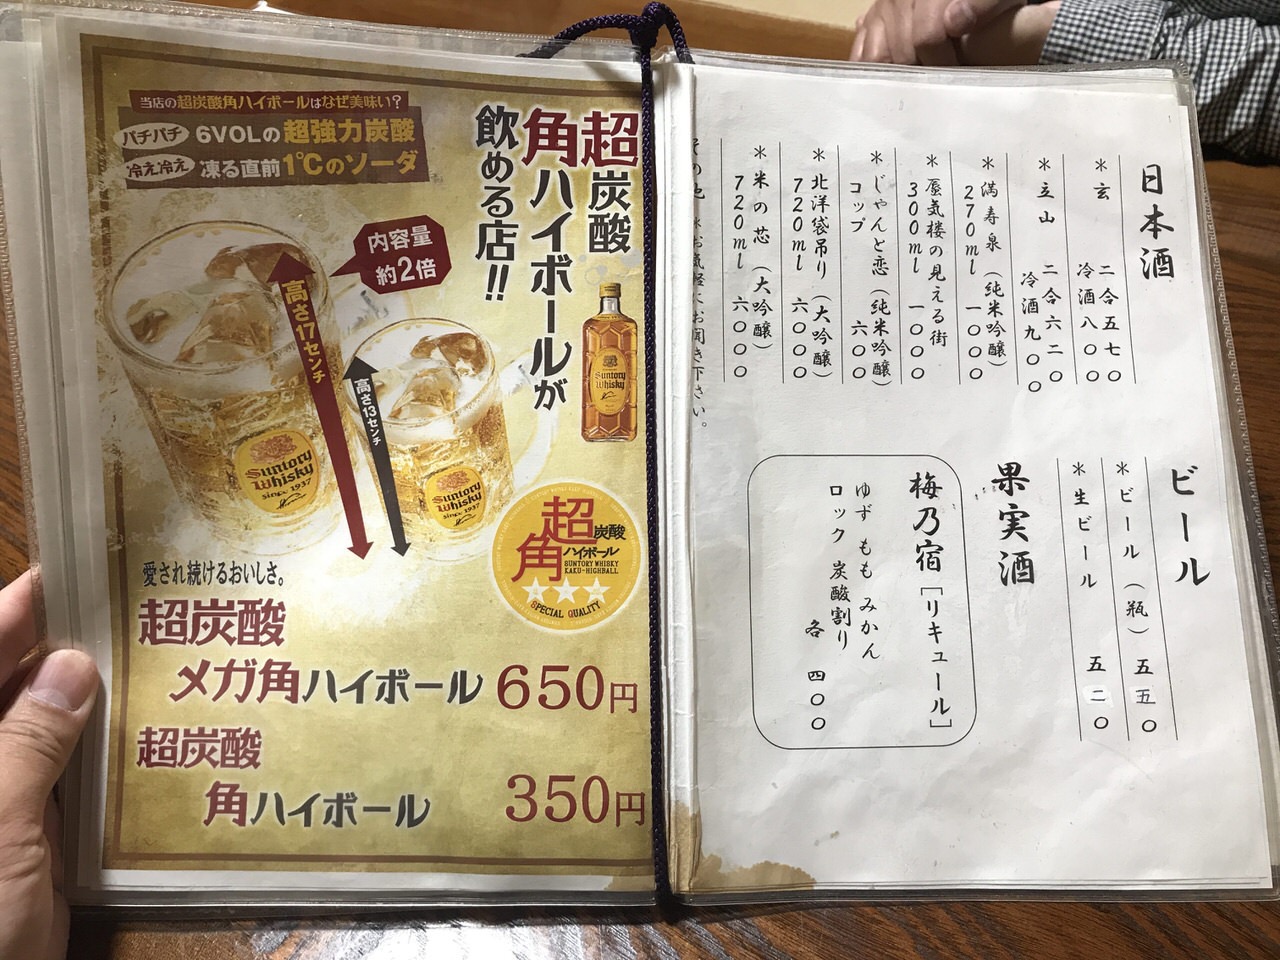 当店の超炭酸角ハイボールはなぜ美味い?
パチパチ 6VOLの超強力炭酸
冷え冷え 凍る直前1℃のソーダ
超炭酸
角ハイボールが
飲める店!!
内容量
約2倍
高さ17センチ
高さ13センチ
Suntory
Whisky
since 1937
Suntory
Whisky
since 1937
Suntory
Whisky
超角
炭酸
ハイボール
SUNTORY WHISKY
KAKU-HIGHBALL
SPECIAL QUALITY
愛され続けるおいしさ。
超炭酸
メガ角ハイボール 650円
超炭酸
角ハイボール 350円
日本酒
*玄 二合五七〇
冷酒八〇〇
*立山 二合六二〇
冷酒九〇〇
*満寿泉(純米吟醸)
270ml 一〇〇〇
*蜃気楼の見える街
300ml 一〇〇〇
*じゃんと恋(純米吟醸)
コップ 六〇〇
*北洋袋吊り(大吟醸)
720ml 六〇〇〇
*米の芯(大吟醸)
720ml 六〇〇〇
その他 *お気軽にお聞き下さい。
ビール
*ビール(瓶) 五五〇
*生ビール 五二〇
果実酒
梅乃宿[リキュール]
ゆず もも みかん
ロック 炭酸割り
各 四〇〇